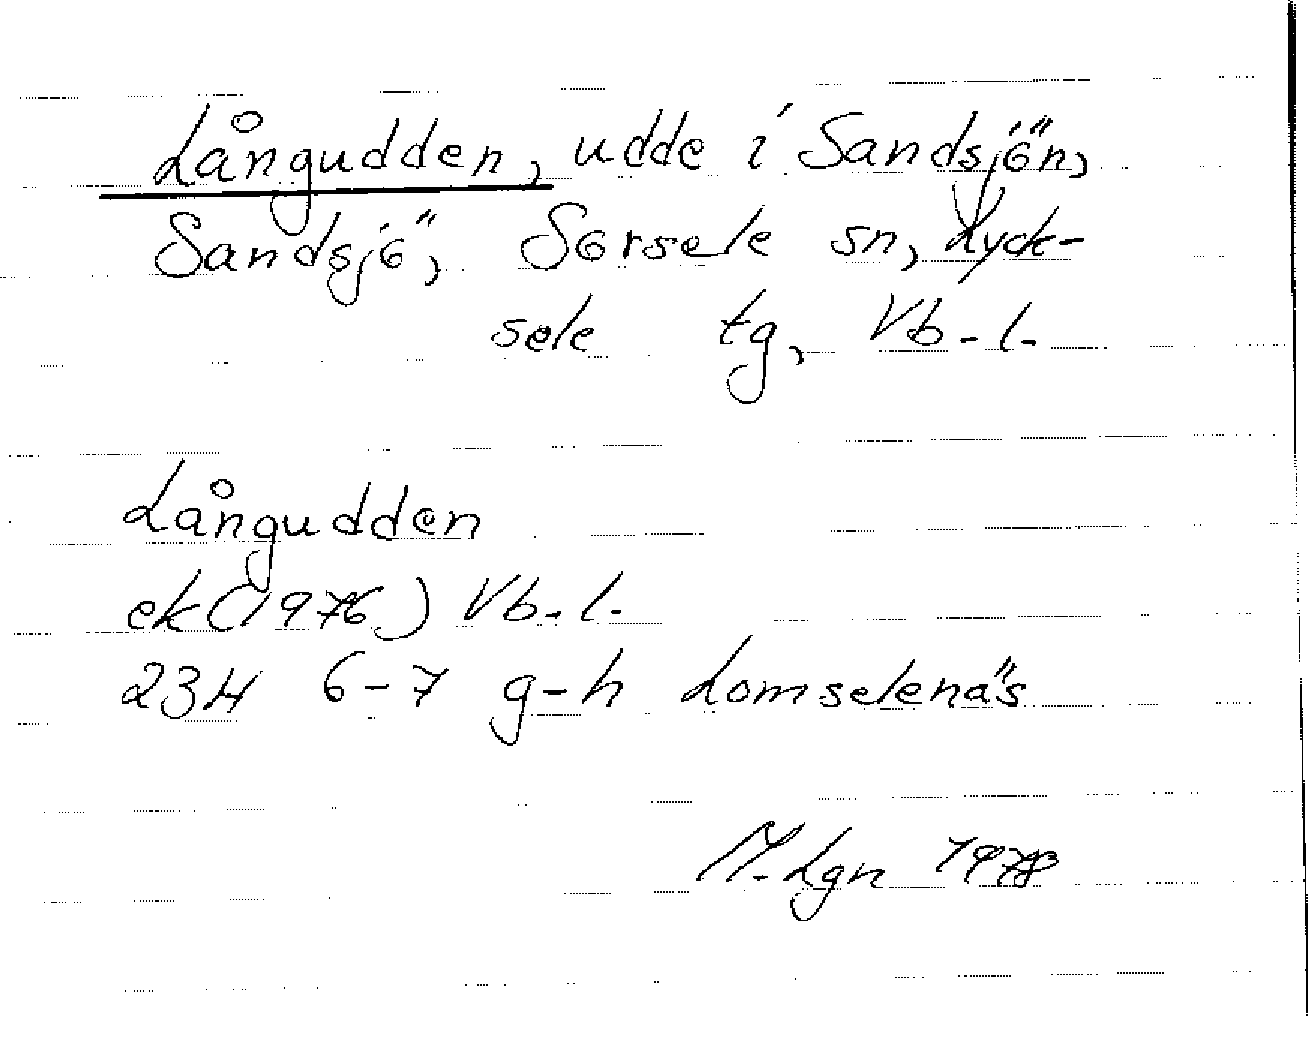 Långudden, udde i Sandsjön,
Sandsjö, Sorsele sn, Lyck-
sele tg, Vb-l.
Långudden
ek (1976) Vb-l.
23H 6-7 g-h Lomselenäs
M-Lgn 1978